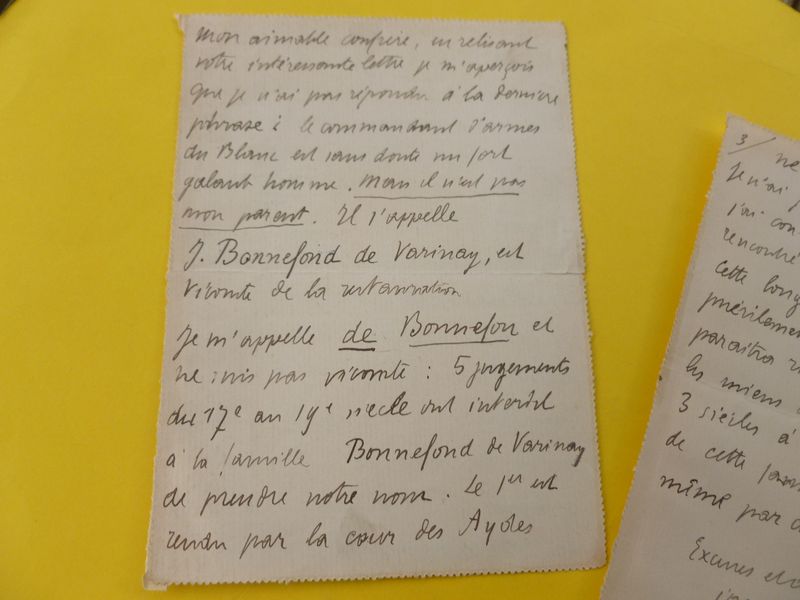 Mon aimable confrère, en relisant
votre intéressante lettre je m'aperçois
que je n'ai pas répondu à la dernière
phrase : le commandant d'armes
du Blanc est sans doute un fort
galant homme. Mais il n'est pas
mon parent. Il s'appelle
J. Bonnefond de Varinay, est
vicomte de la restauration
Je m'appelle de Bonnefon et
ne suis pas vicomte : 5 jugements
du 17e au 19e siècle ont interdit
à la famille Bonnefond de Varinay
de prendre notre nom. Le 1er est
rendu par la cour des Aydes
3/ ne
Je n'ai
j'ai con
rencontré
Cette long
puérilement
paraitra
les miens
3 siècles à
de cette
même par
Excuses et